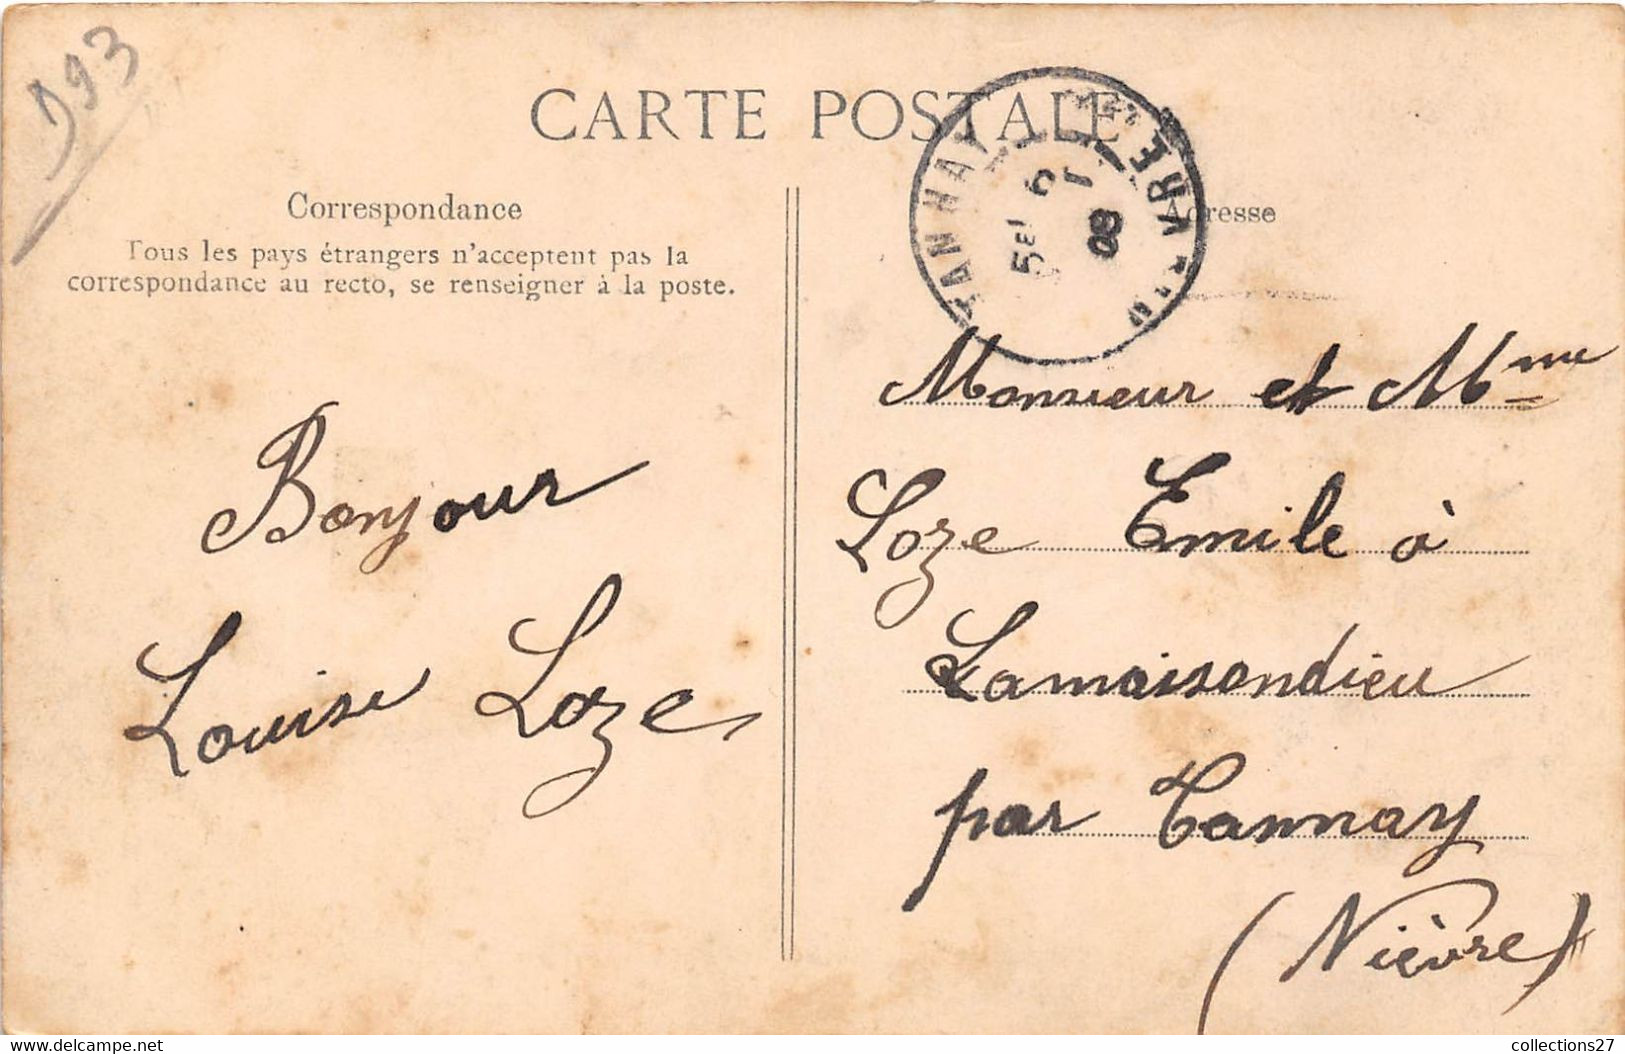 D93
CARTE POSTALE
TANNAY
NIÈVRE
6
1
08
Correspondance
Tous les pays étrangers n'acceptent pas la
correspondance au recto, se renseigner à la poste.
Bonjour
Louise Loze
Adresse
Monsieur et Mme
Loze Emile à
Lamaisondieu
par Tannay
(Nièvre)
www.delcampe.net
collections27